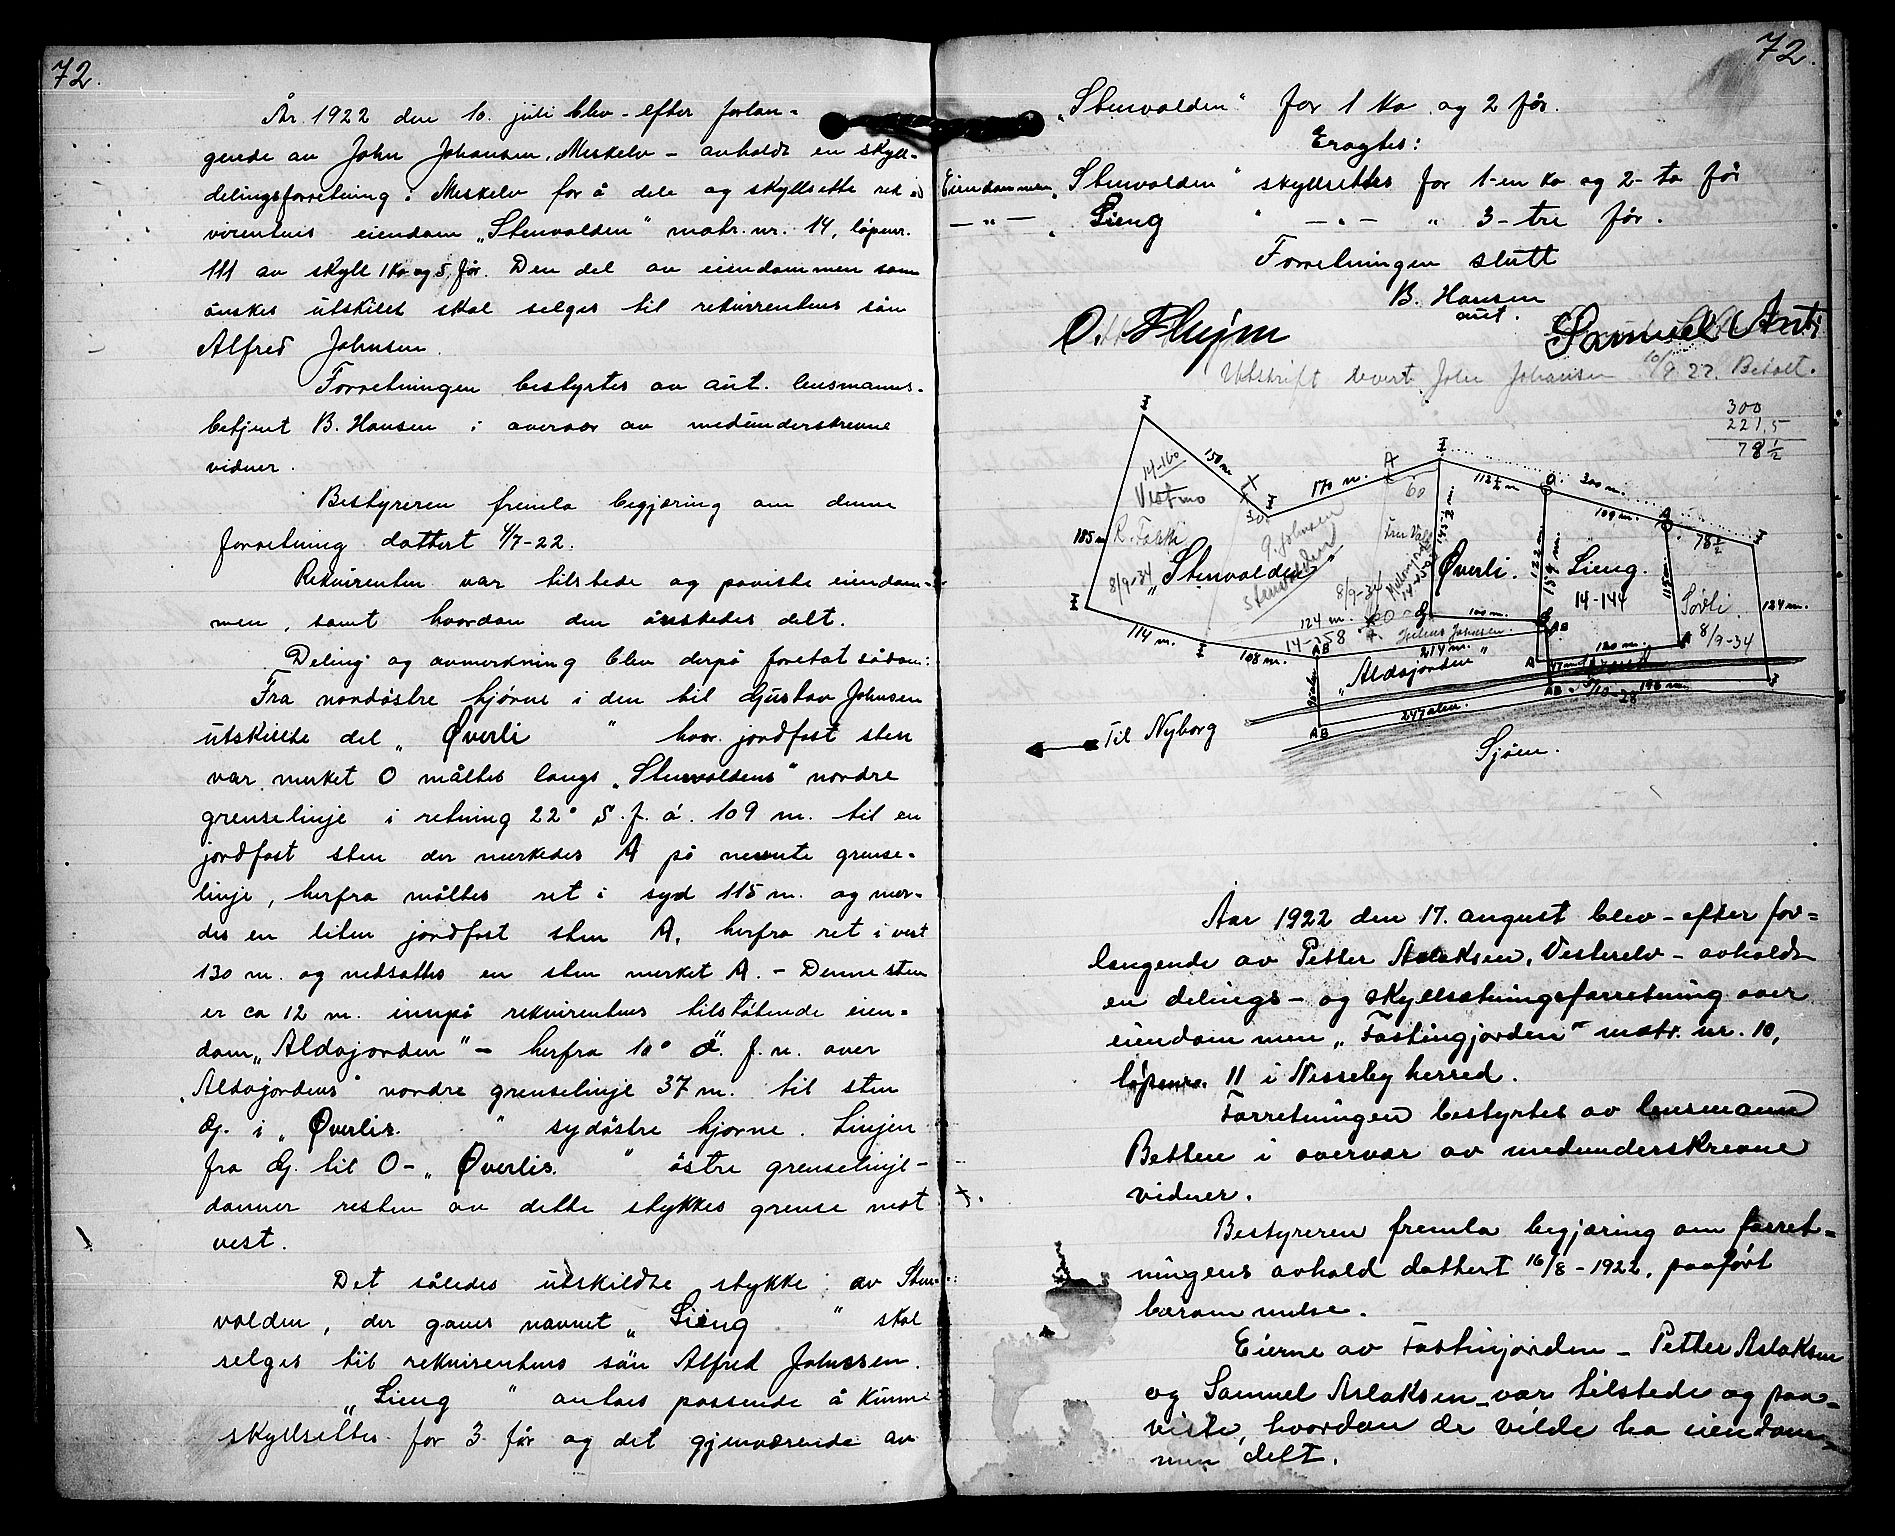 72.
År 1922 den 10. juli blev - efter forlan-
gende av John Johansen, Meskelv - avholdt en skyll-
delingsforretning i Meskelv for å dele og skyllsette rek
virentens eiendom „Stenvolden" matr. nr. 14, løpenr.
111 av skyll 1 ko og 5 før. Den del av eiendommen som
ønskes utskillt skal selges til rekvirentens søn
Alfred Johnsen.
Forretningen bestyrtes av aut. lensmanns-
betjent B. Hansen i overvær av medunderskrevne
vidner.
Bestyreren fremla begjæring om denne
forretning dattert 4/7-22.
Rekvirenten var tilstede og paviste eiendom-
men, samt hvordan den ønskedes delt.
Deling og avmerkning blev derpå foretat sådan:
Fra nordøstre hjørne i den til Gustav Johnsen
utskillte del „ Øverli " hvor jordfast sten
var merket O måltes langs „Stenvoldens" nordre
grenselinje i retning 22° S. f. ø. 109 m. til en
jordfast sten der merkedes A på nevnte grense-
linje, herfra måltes ret i syd 115 m. og mer-
des en liten jordfast sten A, herfra ret i vest
130 m. og nedsattes en sten merket A. - Denne sten
er ca 12 m. innpå rekvirentens tilstøtende eien-
dom „Aldajorden" - herfra 10° ø. f. n. over
„Aldajordens" nordre grenselinje 37 m. til sten
G. i „Øverlis " sydøstre hjørne. Linjen
fra G. til O - „Øverlis " østre grenselinje -
danner resten av dette stykkes grense mot
vest.
Det således utskildte stykke av Sten-
volden, der gives navnet „ Lieng " skal
selges til rekvirentens søn Alfred Johnssen.
„ Lieng " antas passende å kunne
skyllsettes for 3 før og det gjenværende av
72.
„Stenvolden" for 1 ko og 2 før.
Eragtes:
Eiendommen „Stenvolden" skyllsettes for 1-en ko og 2-to før
— „ — „ Lieng " — „ — " 3-tre før.
Forretningen slutt
B. Hansen
aut.
Samuel Anti
Utskrift levert John Johansen 10/9 22. Betalt.
300
221,5
78½
14-160
Vestmo
150 m.
X
30
170 m.
A
60
O.
300 m.
109 m.
A
78½
185 m
8/9-34
„Stenvolden"
G. Johnsen
Stenvolden
8/9-34
Øverli.
122 m.
159 m.
Lieng.
14-144
115 m.
Sørli.
8/9-34
124 m.
114 m.
108 m.
124 m.
14-158
AB
100 m.
Johnsen.
214 m.
„Aldajorden"
AB
A
120 m.
A
AB
247 alen.
AB
Til Nyborg
Sjøen.
Aar 1922 den 17. august blev - efter for-
langende av Petter Aslaksen, Vesterelv - avholdt
en delings - og skyllsætningsforretning over
eiendommen „Fastingjorden" matr. nr. 10,
løpenr. 11 i Nesseby herred.
Forretningen bestyrtes av lensmann
Betten i overvær av medunderskrevne
vidner.
Bestyreren fremla begjæring om forret-
ningens avhold dattert 16/8 - 1922, paaført
berammelse.
Eierne av Fastinjorden - Petter Aslaksen
og Samuel Aslaksen - var tilstede og paa-
viste, hvordan de vilde ha eiendom-
men delt.